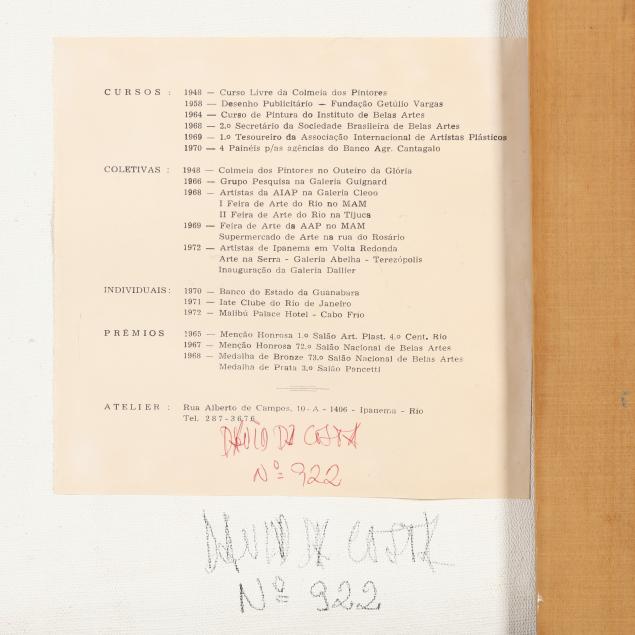 CURSOS : 1948 — Curso Livre da Colmeia dos Pintores
1958 — Desenho Publicitário — Fundação Getúlio Vargas
1964 — Curso de Pintura do Instituto de Belas Artes
1968 — 2.o Secretário da Sociedade Brasileira de Belas Artes
1969 — 1.o Tesoureiro da Associação Internacional de Artistas Plásticos
1970 — 4 Painéis p/as agências do Banco Agr. Cantagalo
COLETIVAS : 1948 — Colmeia dos Pintores no Outeiro da Glória
1966 — Grupo Pesquisa na Galeria Guignard
1968 — Artistas da AIAP na Galeria Cleoo
I Feira de Arte do Rio no MAM
II Feira de Arte do Rio na Tijuca
1969 — Feira de Arte da AAP no MAM
Supermercado de Arte na rua do Rosário
1972 — Artistas de Ipanema em Volta Redonda
Arte na Serra - Galeria Abelha - Terezópolis
Inauguração da Galeria Dallier
INDIVIDUAIS: 1970 — Banco do Estado da Guanabara
1971 — Iate Clube do Rio de Janeiro
1972 — Malibú Palace Hotel - Cabo Frio
PRÊMIOS 1965 — Menção Honrosa 1.o Salão Art. Plast. 4.o Cent. Rio
1967 — Menção Honrosa 72.o Salão Nacional de Belas Artes
1968 — Medalha de Bronze 73.o Salão Nacional de Belas Artes
Medalha de Prata 3.o Salão Pancetti
ATELIER : Rua Alberto de Campos, 10-A - 1406 - Ipanema - Rio
Tel. 287-3676
DAVID DA COSTA
Nº 922
DAVID DA COSTA
Nº 922